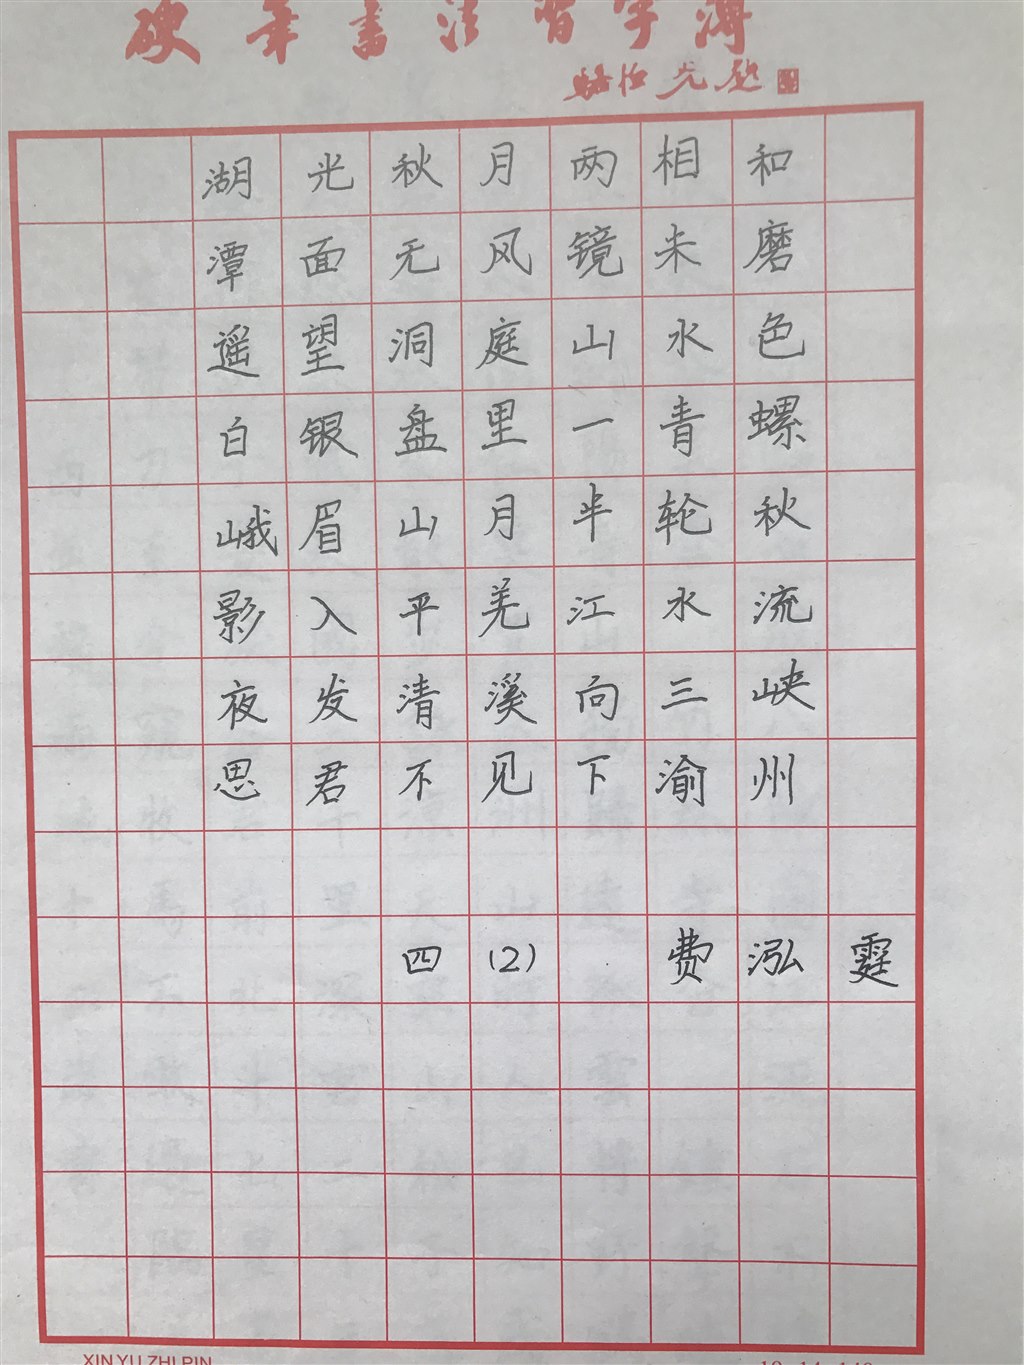 硬笔书法习字簿
湖光秋月两相和
潭面无风镜未磨
遥望洞庭山水色
白银盘里一青螺
峨眉山月半轮秋
影入平羌江水流
夜发清溪向三峡
思君不见下渝州
四(2) 费泓霆
XIN YU ZHI PIN